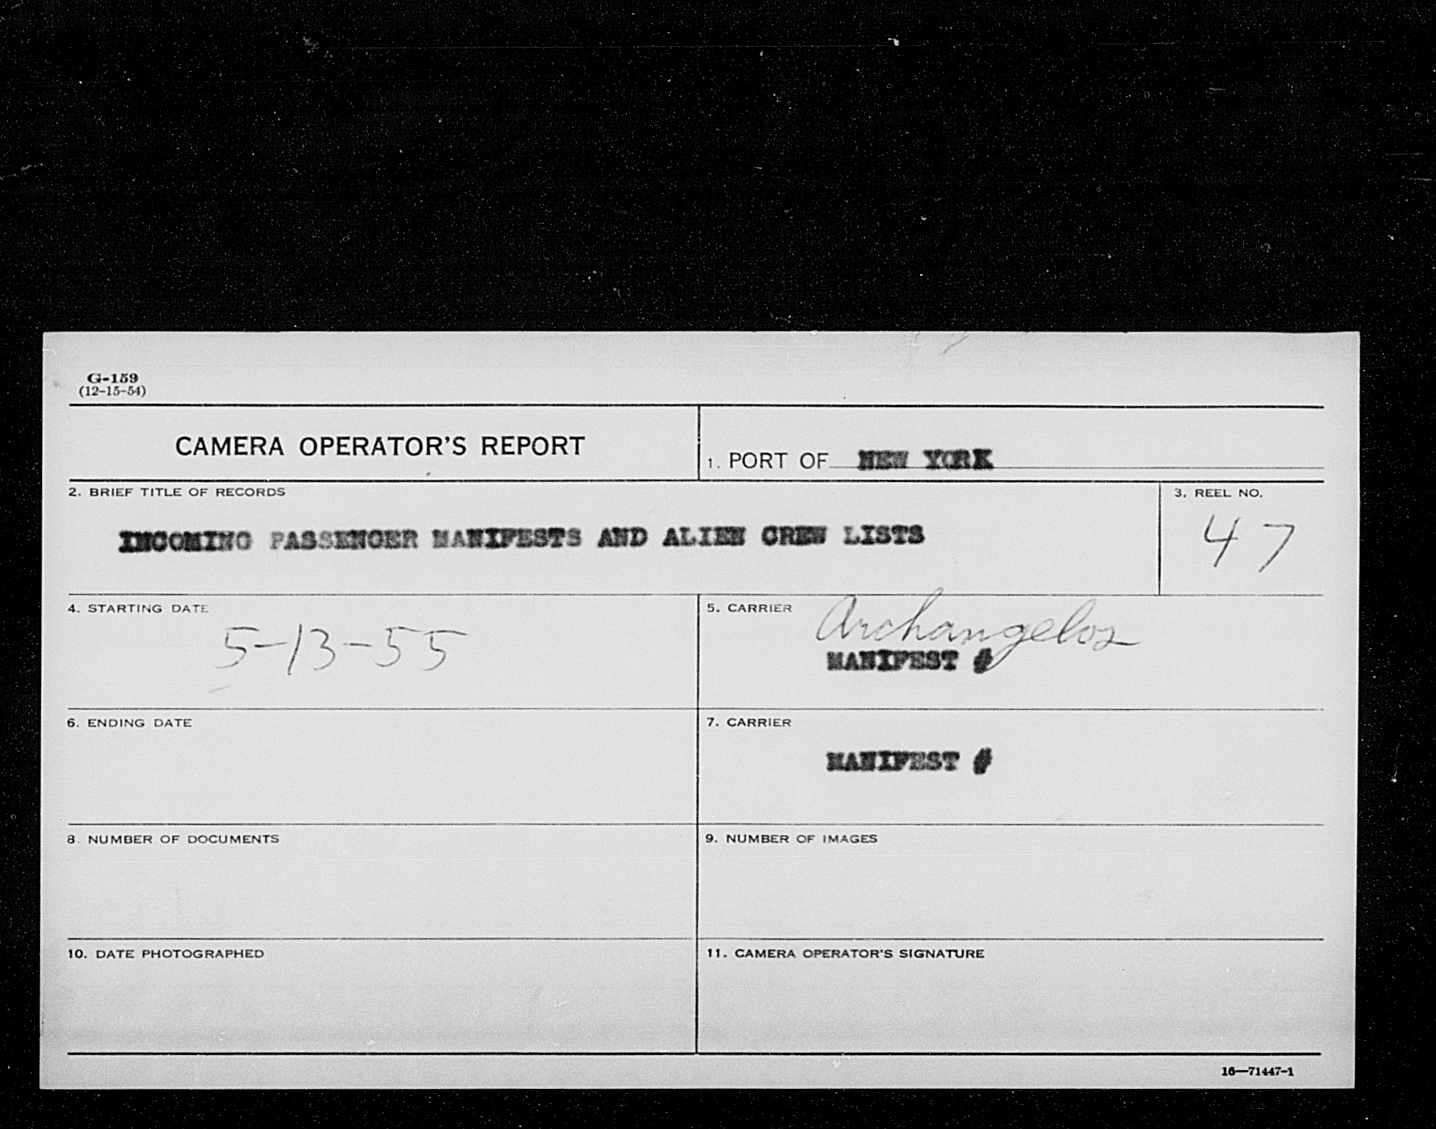 G-159
(12-15-54)
CAMERA OPERATOR'S REPORT
1. PORT OF NEW YORK
2. BRIEF TITLE OF RECORDS
INCOMING PASSENGER MANIFESTS AND ALIEN CREW LISTS
3. REEL NO.
47
4. STARTING DATE
5-13-55
5. CARRIER Archangelos
MANIFEST #
6. ENDING DATE
7. CARRIER
MANIFEST #
8. NUMBER OF DOCUMENTS
9. NUMBER OF IMAGES
10. DATE PHOTOGRAPHED
11. CAMERA OPERATOR'S SIGNATURE
16—71447-1